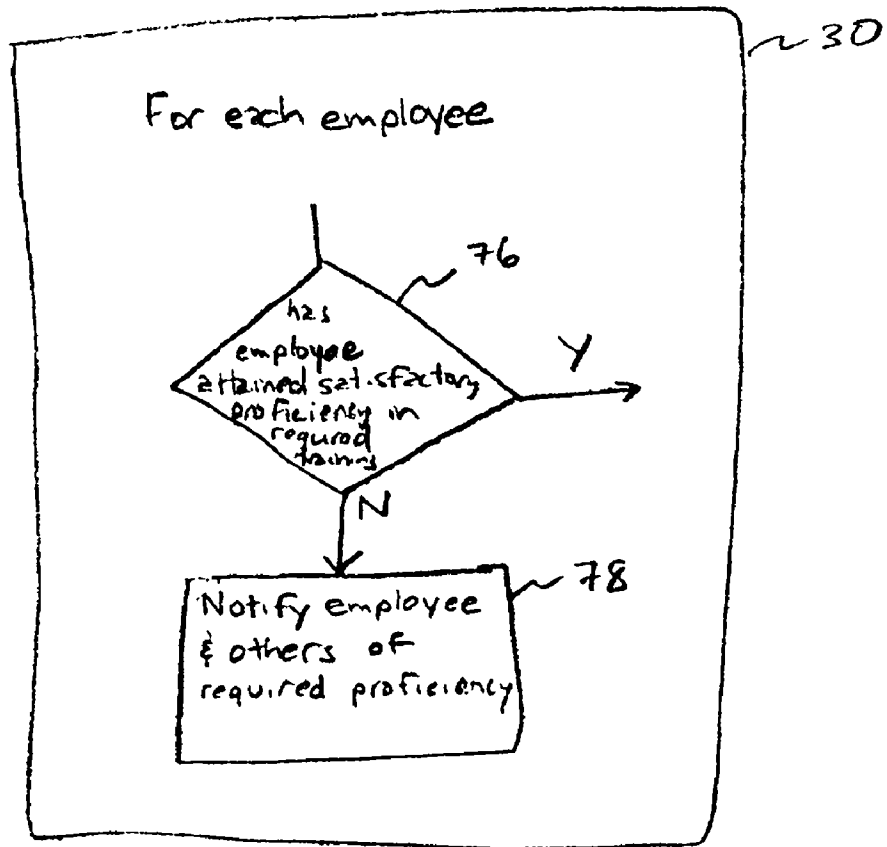 30
For each employee
76
has
employee
attained satisfactory
proficiency in
required
training
Y
N
78
Notify employee
& others of
required proficiency